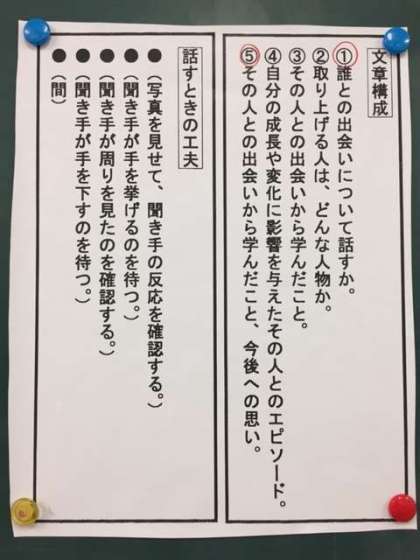 文章構成
①誰との出会いについて話すか。
②取り上げる人は、どんな人物か。
③その人との出会いから学んだこと。
④自分の成長や変化に影響を与えたその人とのエピソード。
⑤その人との出会いから学んだこと、今後への思い。
話すときの工夫
●（写真を見せて、聞き手の反応を確認する。）
●（聞き手が手を挙げるのを待つ。）
●（聞き手が周りを見たのを確認する。）
●（聞き手が手を下すのを待つ。）
●（間）